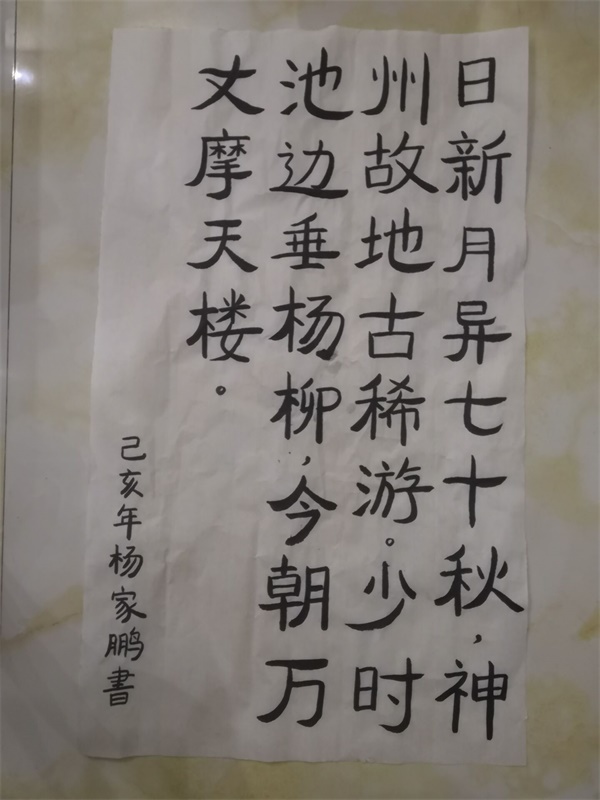 日新月异七十秋，神
州故地古稀游。少时
池边垂杨柳，今朝万
丈摩天楼。
己亥年杨家鹏書